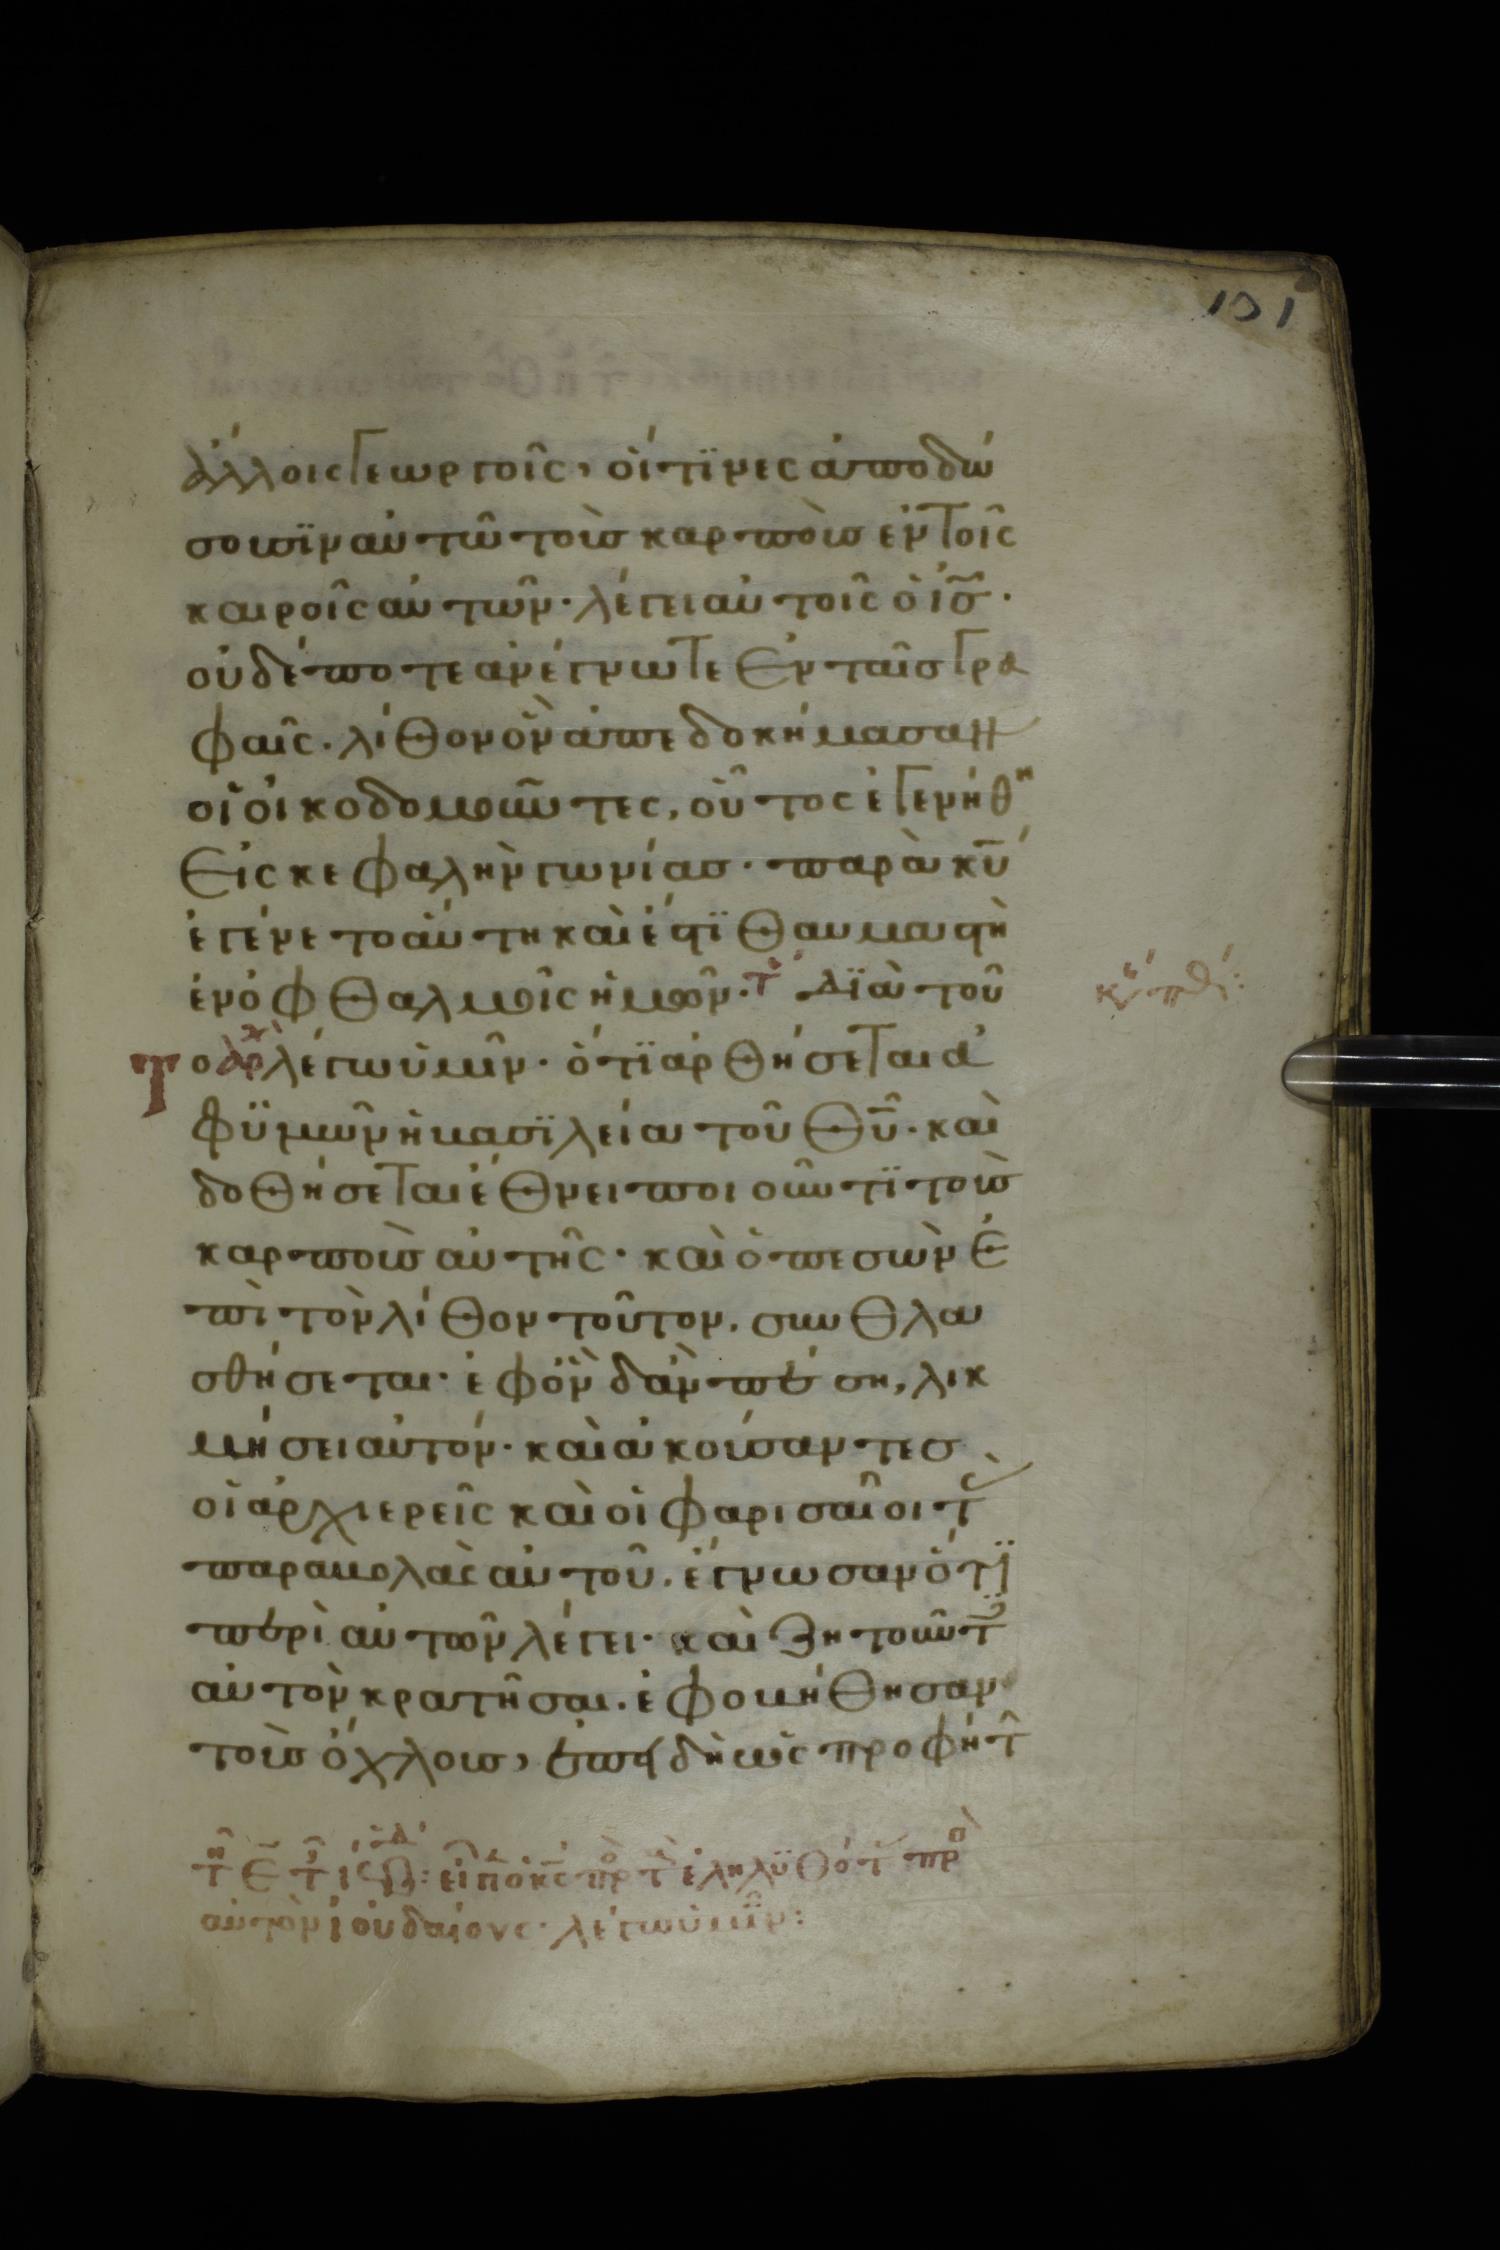 101
ἄλλοις γεωργοῖς, οἵτϊνες ἀποδώ
σουσϊν αὐτῶ τοὺσ καρποὺσ ἐν τοῖς
καιροῖς αὐτῶν· λέγει αὐτοῖς ὁ ἰ̅σ̅·
οὐδέποτε ἀνέγνωτε ἐν ταῖσ γρα
φαῖς· λίθον ὃν ἀπεδοκήμασαν
οἱ οἰκοδομοῦντες, οὗτος ἐγενήθη
εἰς κεφαλὴν γωνίασ· παρὰ κ̅υ̅
ἐγένετο αὕτη καὶ ἔστϊ θαυμαστὴ
ἐν ὀφθαλμοῖς ἡμῶν· τ Δϊὰ τοῦ
το λέγω ὑμῖν· ὅτϊ ἀρθήσεται ἀ
φ ϋμῶν ἡ βασϊλεία τοῦ θ̅υ̅· καὶ
δοθήσεται ἔθνει ποιοῦντϊ τοὺσ
καρποὺσ αὐτῆς· καὶ ὁ πεσὼν ἐ
πὶ τὸν λίθον τοῦτον, συνθλα
σθήσεται· ἐφ ὃν δ ἂν πέση, λικ
μήσει αὐτόν· καὶ ἀκούσαντεσ
οἱ ἀρχιερεῖς καὶ οἱ φαρισαῖοι τ
παραβολὰς αὐτοῦ, ἔγνωσαν ὅτϊ
περὶ αὐτῶν λέγει· καὶ ζητοῦντ
αὐτὸν κρατῆσαι, ἐφοβήθησαν
τοὺσ ὄχλουσ, ἐπειδὴ ὡς προφήτ
αὐτὸν ἰουδαίους· λέγω ὑμῖν: